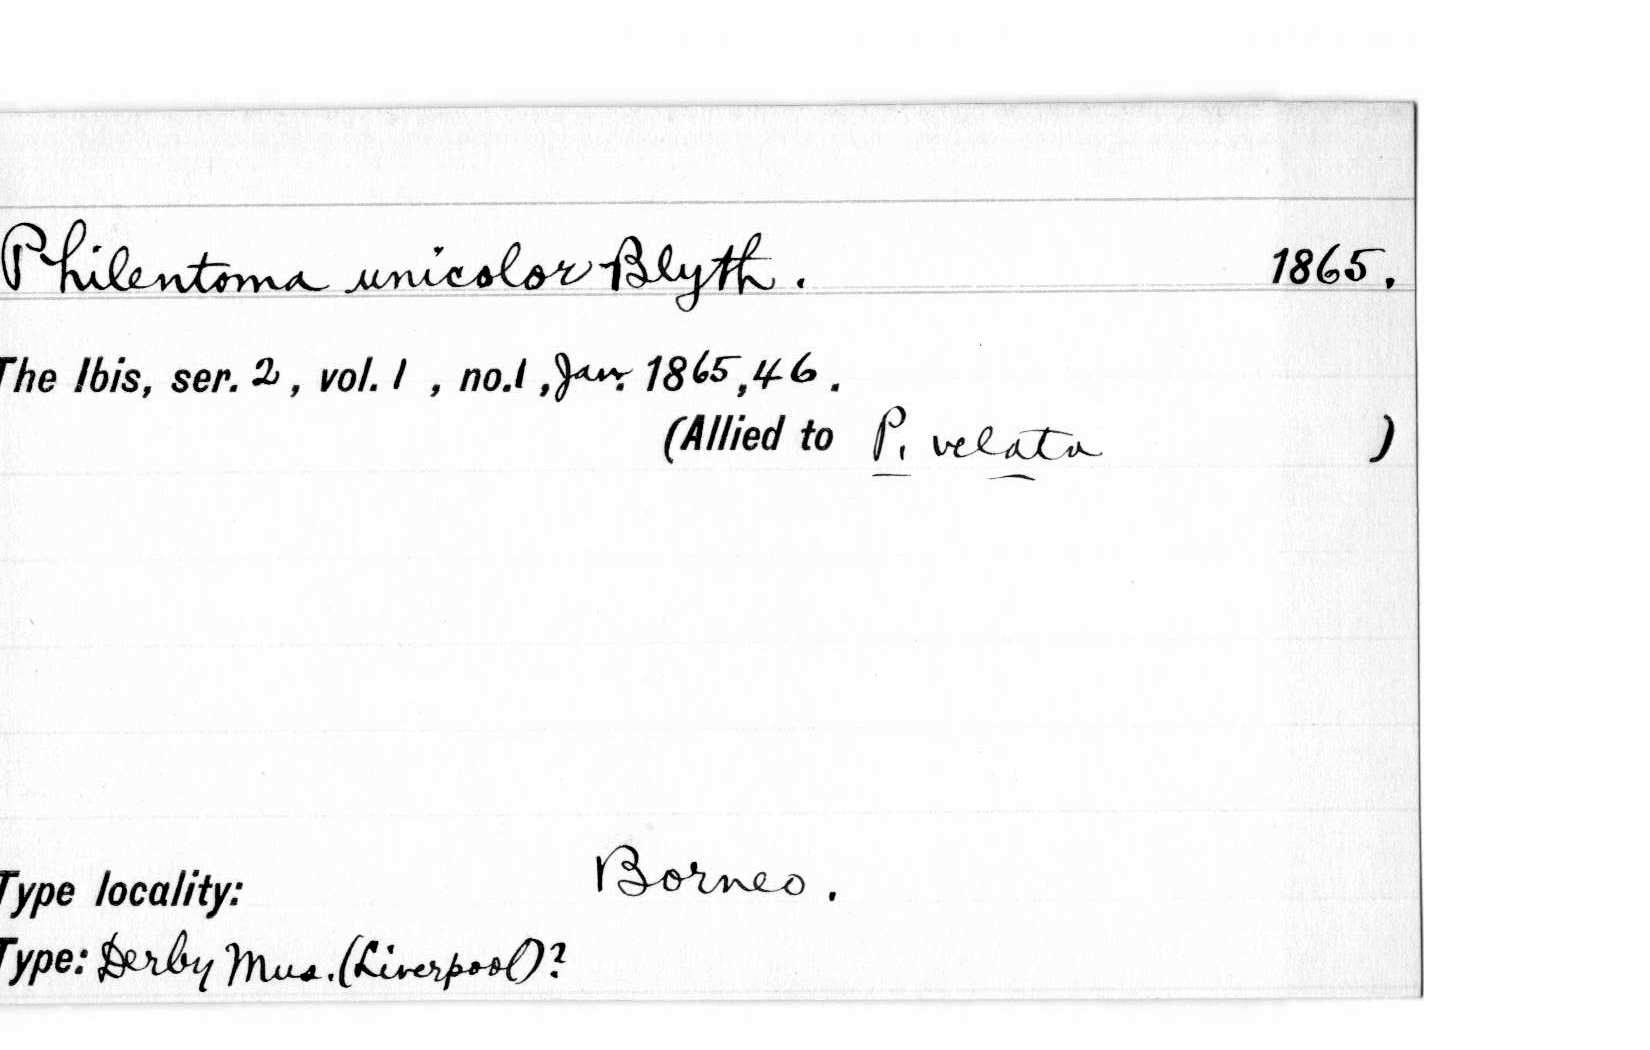 Philentoma unicolor Blyth. 1865.
The Ibis, ser. 2, vol. 1, no. 1, Jan. 1865, 46.
(Allied to P. velata )
Type locality: Borneo.
Type: Derby Mus. (Liverpool)?